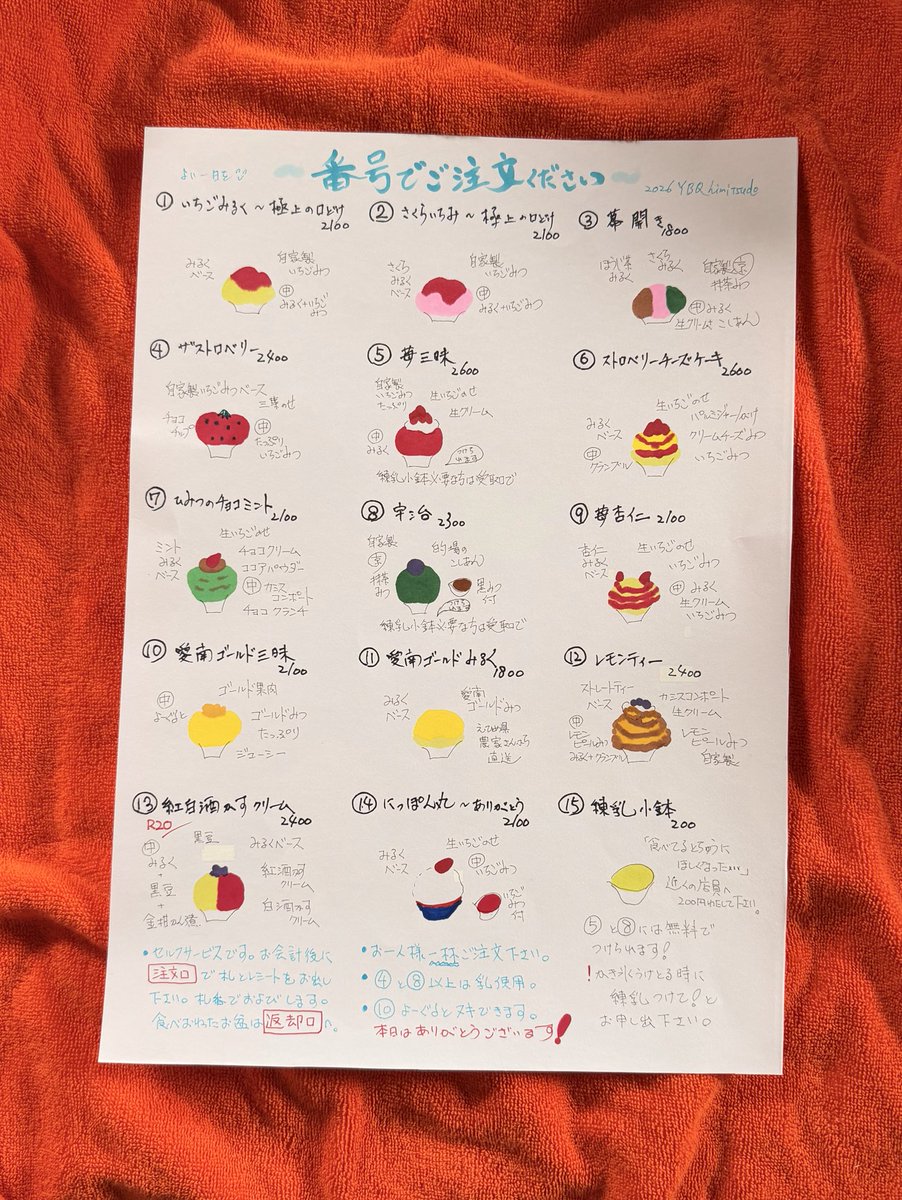 よい一日を
番号でご注文ください
2026 YBQ himitsudo
① いちごみるく～極上の口どけ
2100
みるく
ベース
自家製
いちごみつ
中
みるく+いちご
みつ
② さくらいちみ～極上の口どけ
2100
さくら
みるく
ベース
自家製
いちごみつ
中
みるく+いちご
みつ
③ 幕開き
1800
ほうじ茶
みるく
さくら
みるく
自家製 京
抹茶みつ
中 みるく
生クリーム こしあん
④ ザストロベリー
2400
自家製いちごみつベース
チョコ
チップ
中
たっぷり
いちごみつ
⑤ 苺三昧
2600
自家製
いちごみつ
たっぷり
生いちごのせ
生クリーム
中
みるく
つけられます
練乳小鉢必要な方は受取口で
⑥ ストロベリーチーズケーキ
2600
みるく
ベース
中
クランブル
生いちごのせ
パルミジャーノかけ
クリームチーズみつ
いちごみつ
⑦ ひみつのチョコミント
2100
ミント
みるく
ベース
生いちごのせ
チョコクリーム
ココアパウダー
中 カシス
コンポート
チョコクランチ
⑧ 宇治
2300
自家製
京
抹茶
みつ
的場の
こしあん
黒みつ
付
つけられます
練乳小鉢必要な方は受取口で
⑨ 苺杏仁 2100
杏仁
みるく
ベース
生いちごのせ
いちごみつ
中 みるく
生クリーム
いちごみつ
⑩ 愛南ゴールド三昧
2100
中
よーぐると
ゴールド果肉
ゴールドみつ
たっぷり
ジューシー
⑪ 愛南ゴールドみるく
1800
みるく
ベース
愛南
ゴールドみつ
えひめ県
農家さんから
直送
⑫ レモンティー
2400
ストレートティー
ベース
中
レモン
ピールみつ
みるく+クランブル
カシスコンポート
生クリーム
レモン
ピールみつ
自家製
⑬ 紅白酒かすクリーム
2400
R20
中
みるく
+
黒豆
+
金柑かん煮
黒豆
みるくベース
紅酒かす
クリーム
白酒かす
クリーム
⑭ にっぽん丸～ありがとう
2100
みるく
ベース
生いちごのせ
中
いちごみつ
いちご
みつ
付
⑮ 練乳小鉢
200
「食べてるとちゅうに
ほしくなったぃぃ」
近くの店員へ
200円わたして下さい。
⑤と⑧には無料で
つけられます！
！かき氷うけとる時に
練乳つけて！と
お申し出下さい。
・セルフサービスです。お会計後に
注文口で札とレシートをお出し
下さい。札番でおよびします。
食べおわったお盆は返却口へ。
・お一人様一杯ご注文下さい。
・④と⑧以上は乳使用。
・⑩よーぐるとヌキできます。
本日はありがとうございます！